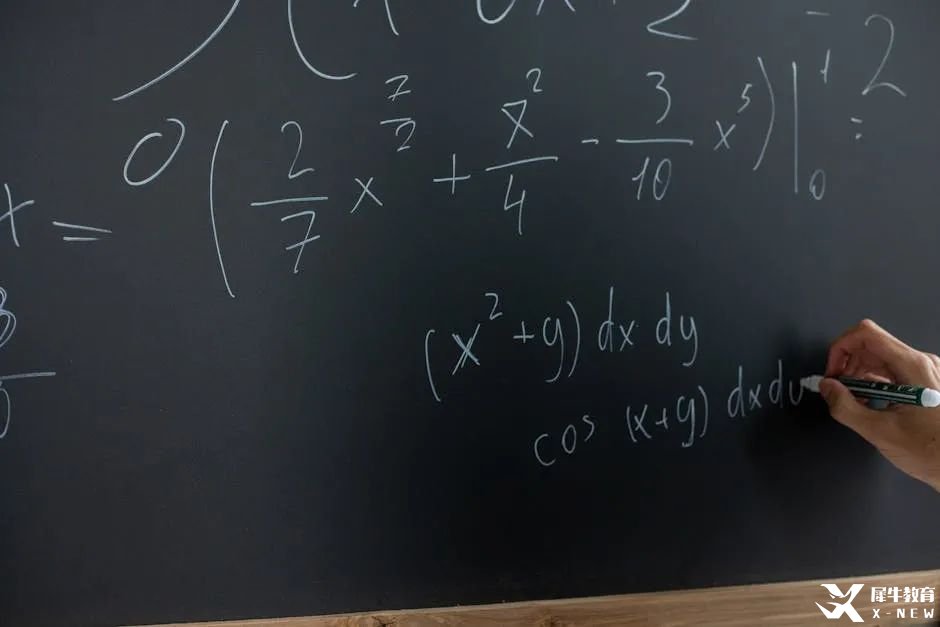 x = 0 (2/7 x^(7/2) + x^2/4 - 3/10 x^5)|_0^1 =
(x^2 + y) dx dy
cos (x+y) dx dy
犀牛教育
X-NEW